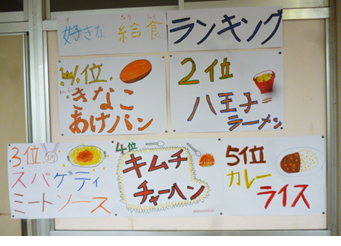 好きな 給食 ランキング
きゅうしょく
1位
きなこ
あげパン
2位
八王子
ラーメン
3位
スパゲティ
ミートソース
4位
キムチ
チャーハン
5位
カレー
ライス